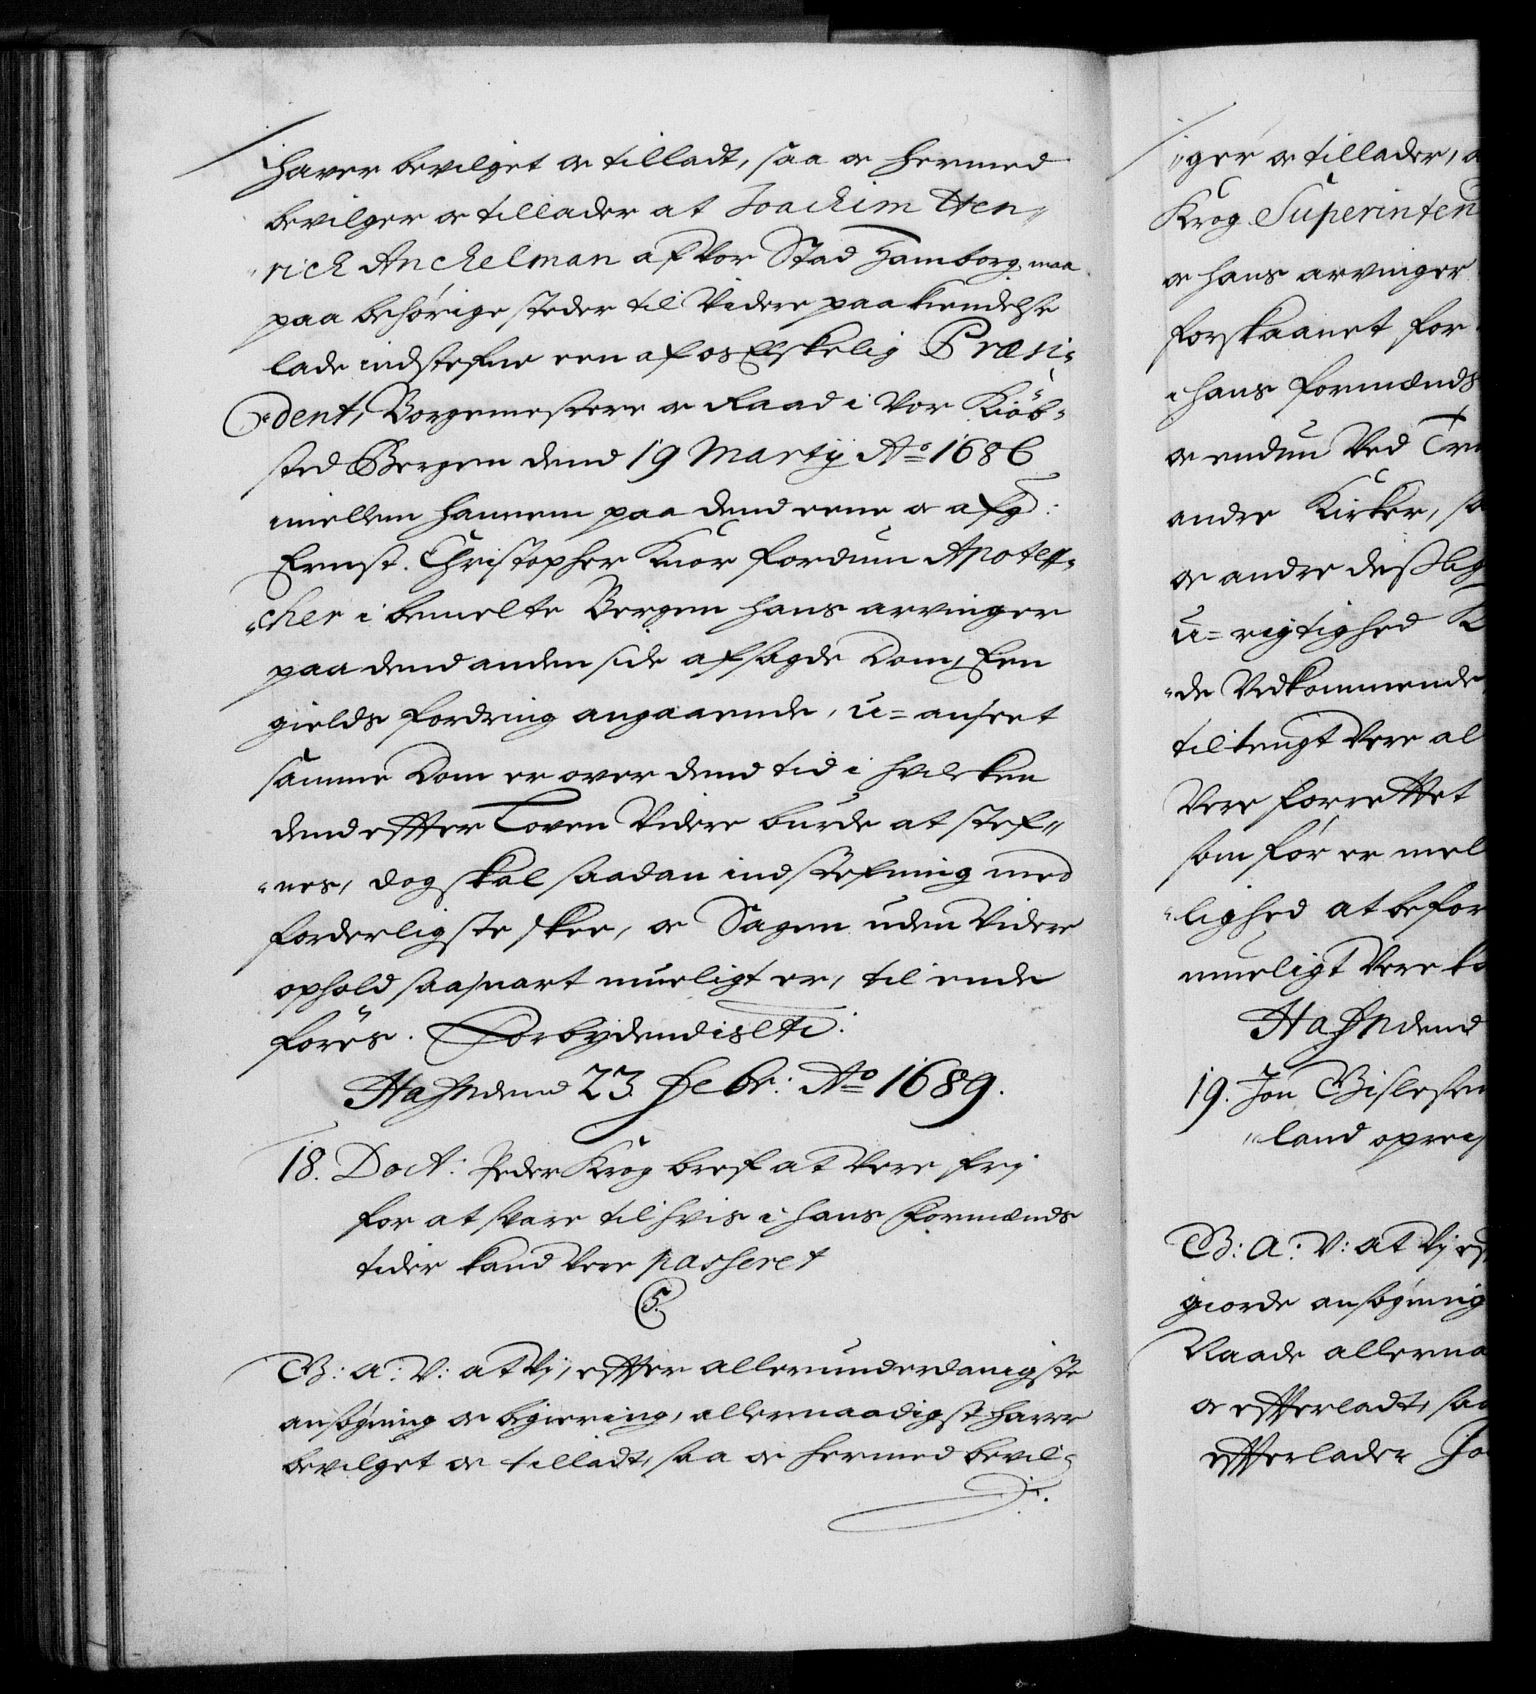 hafver bevilget oc tilladt, saa oc hermed
bevilger oc tillader at Joachim Hen„
„rich Anckelman af vor Stad Hamborg, maa
paa behörige steder til videre paakiendelse
lade indstefne een af os Elskelig Præsi„
„dent, Borgemestere oc Raad i vor Kiöb„
sted Bergen dend 19 Martij Aō 1686
imellem hannem paa dend eene oc afgd:
Ernst Christopher Knor fordum Apotec„
„cher i bemelte Bergen hans arvinger
paa dend anden side afsagde Dom, Een
gields fordring angaaende, u=anseet
samme Dom er over dend tid i hvilcken
dend effter Loven videre burde at stef„
„nes, dog skal saadan indstefning med
forderligste skee, oc Sagen uden videre
ophold saasnart mueligt er, til ende
föres. Forbydendis etc:
Hafn dend 23 Febr: Aō 1689.
18. Doct: Peder Krog bref at vere frj
for at svare til hvis i hans Formænds
tider kand vere passeret
C5.
G: A: V: at Vj, effter allerunderdanigste
ansögning oc begiering, allernaadigst hafver
bevilget oc tilladt, saa oc hermed bevil„
„ger oc tillader, a
Krog Superinten
oc hans arvinger
forskaanet for
i hans formænds
oc enden ved Tr
andre Kirker, s
oc andre desslig
u=rigtighed K
„de vedkommende
tiltengt vere al
vere forrettet
som för er mel
„lighed at befor
mueligt vere k
Hafn dend
19. Jon Gislesen
„land opreis
G: A: V: at Vj ef
giorde ansögning
Naade allerna
oc effterladt, saa
effterlader Jo